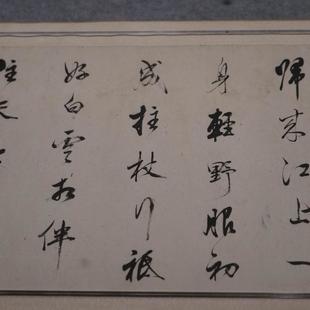 歸來江上一
身輕野服初
成拄杖行祗
好白雲相伴
住天